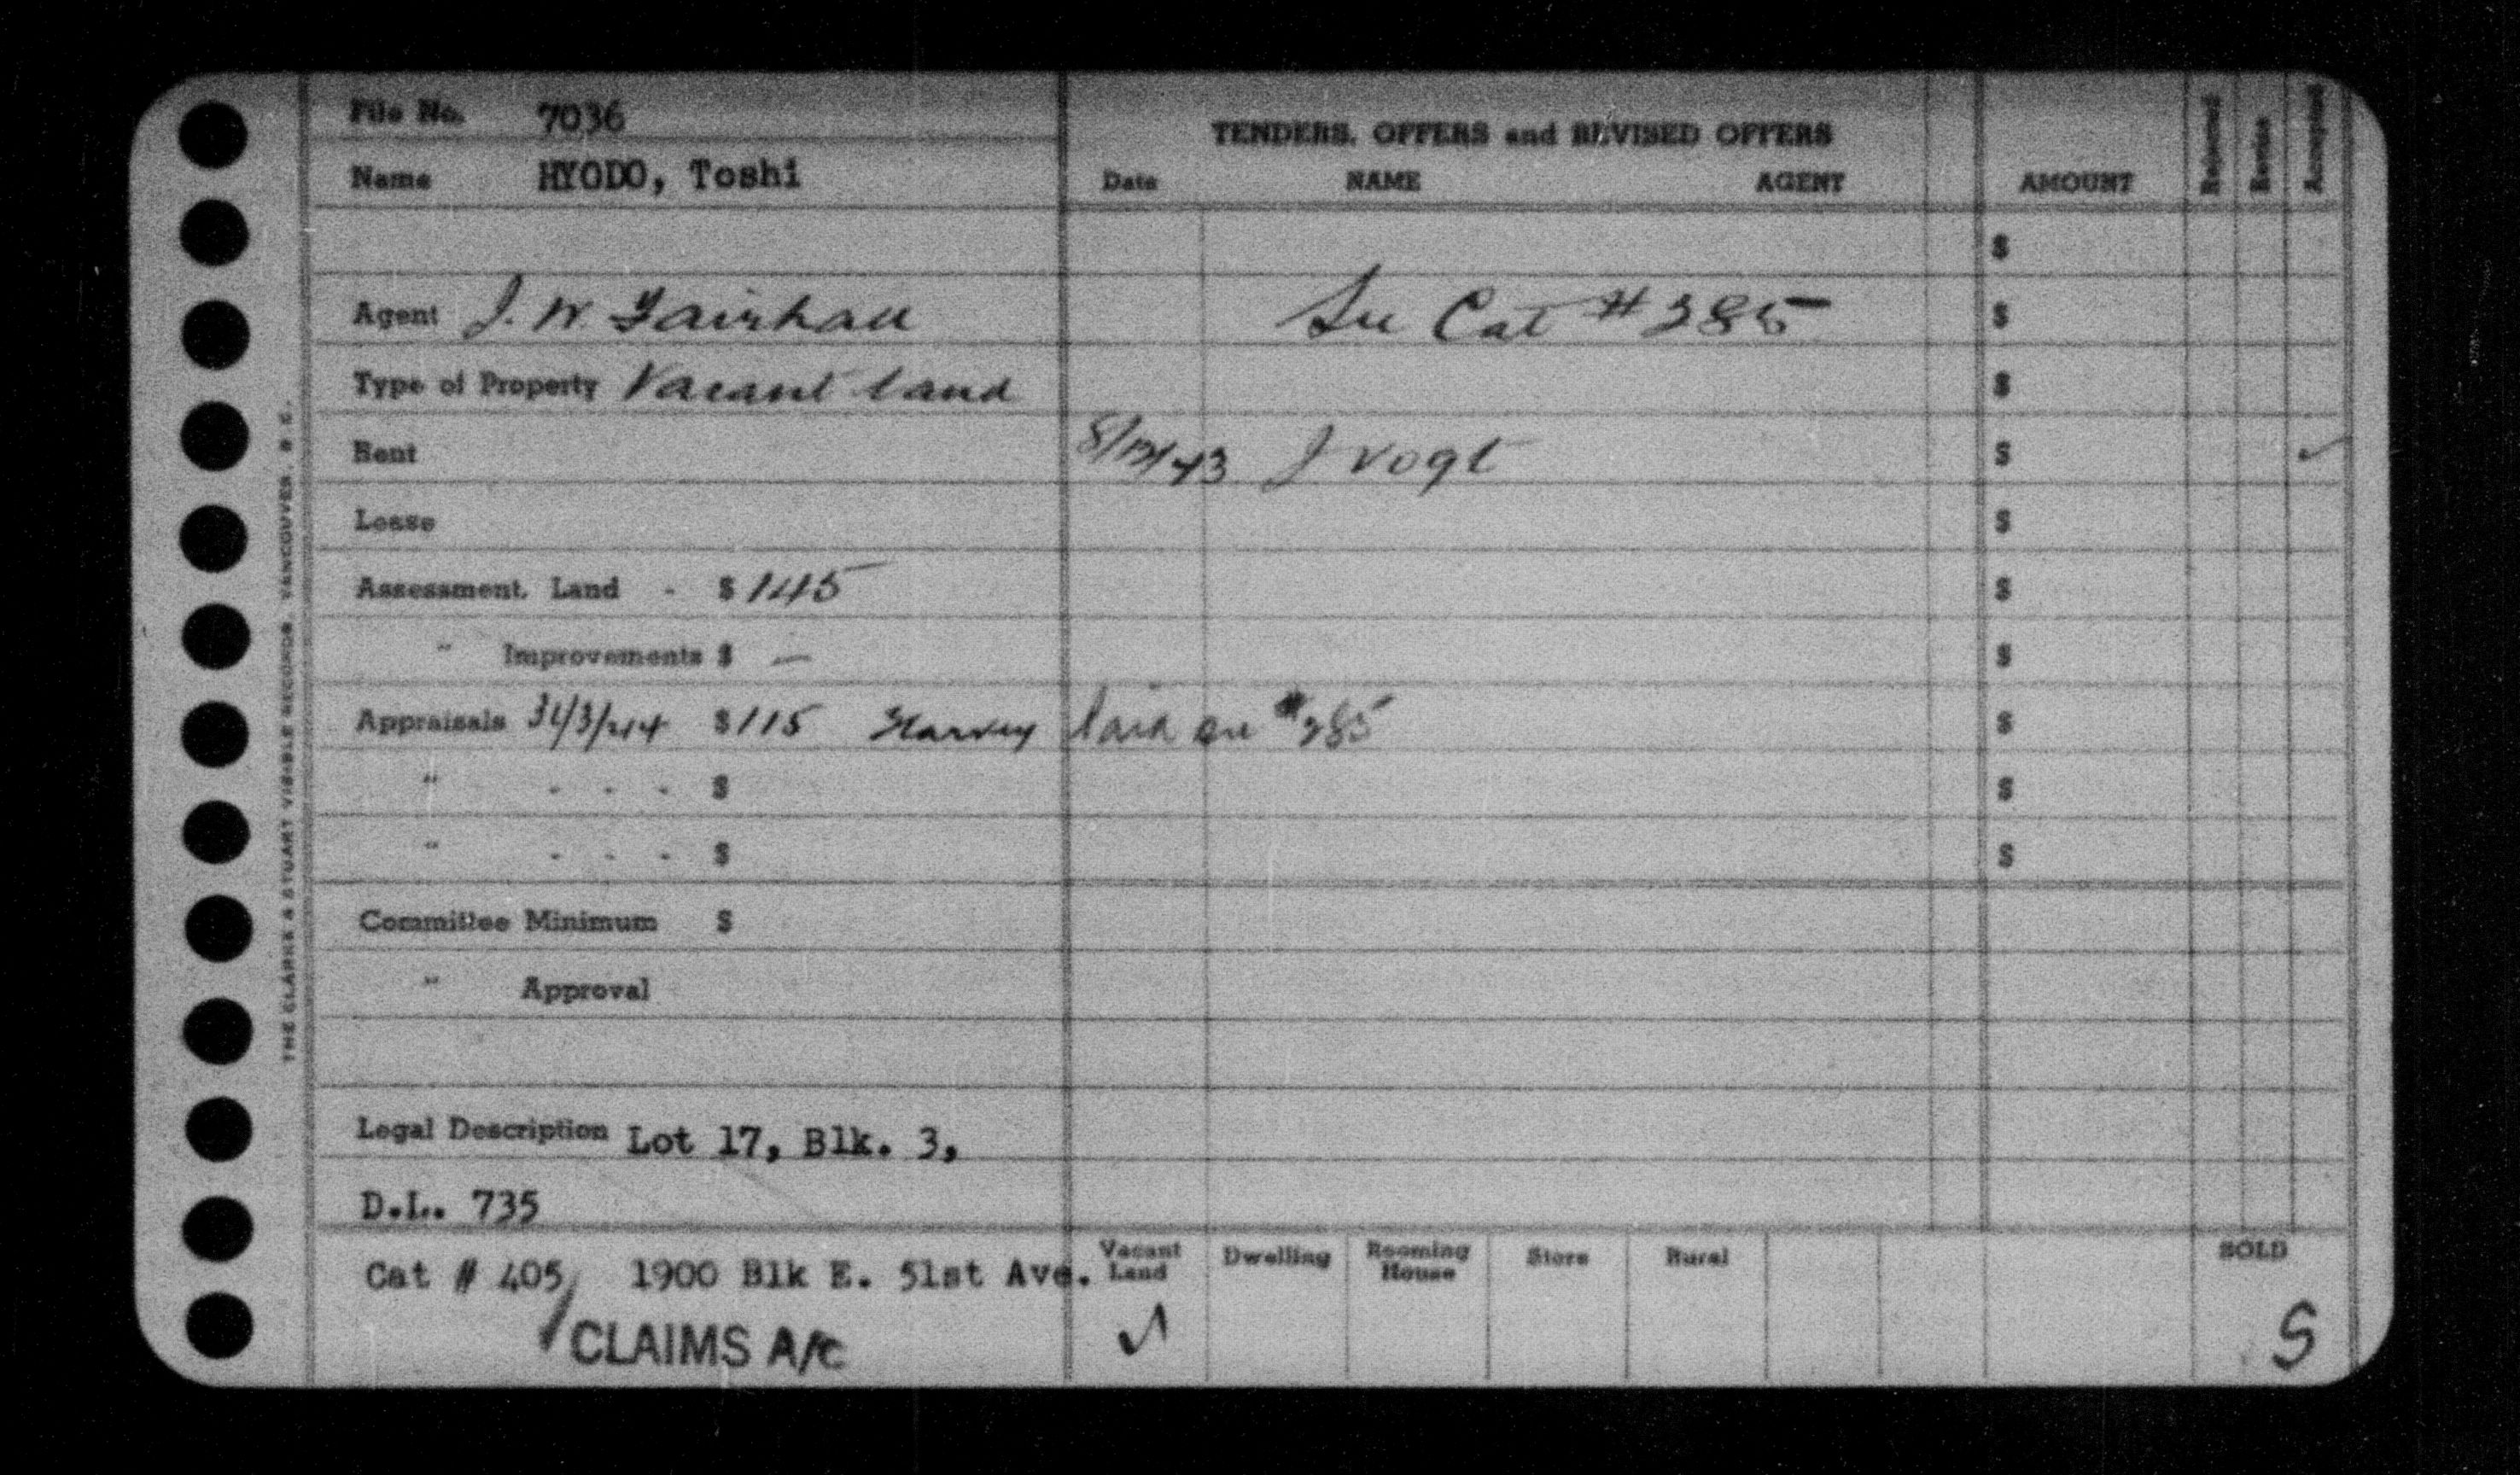 File No. 7036
Name HYODO, Toshi
Agent J. W. Fairhall
Type of Property Vacant land
Rent
Lease
Assessment. Land - $ 145
" Improvements $ —
Appraisals 31/3/44 $ 115 Harvey
" - - - $
" - - - $
Committee Minimum $
" Approval
Legal Description Lot 17, Blk. 3,
D.L. 735
Cat # 405 1900 Blk E. 51st Ave.
CLAIMS A/c
THE CLARKE & STUART VISIBLE RECORDS. VANCOUVER. B C.
TENDERS. OFFERS and REVISED OFFERS
Date NAME AGENT AMOUNT Rejected Revise Accepted
$
See Cat # 385 $
$
8/12/43 J Vogt $ ✓
$
$
$
on #385 $
$
$
Vacant Land Dwelling Rooming House Store Rural SOLD
✓ S